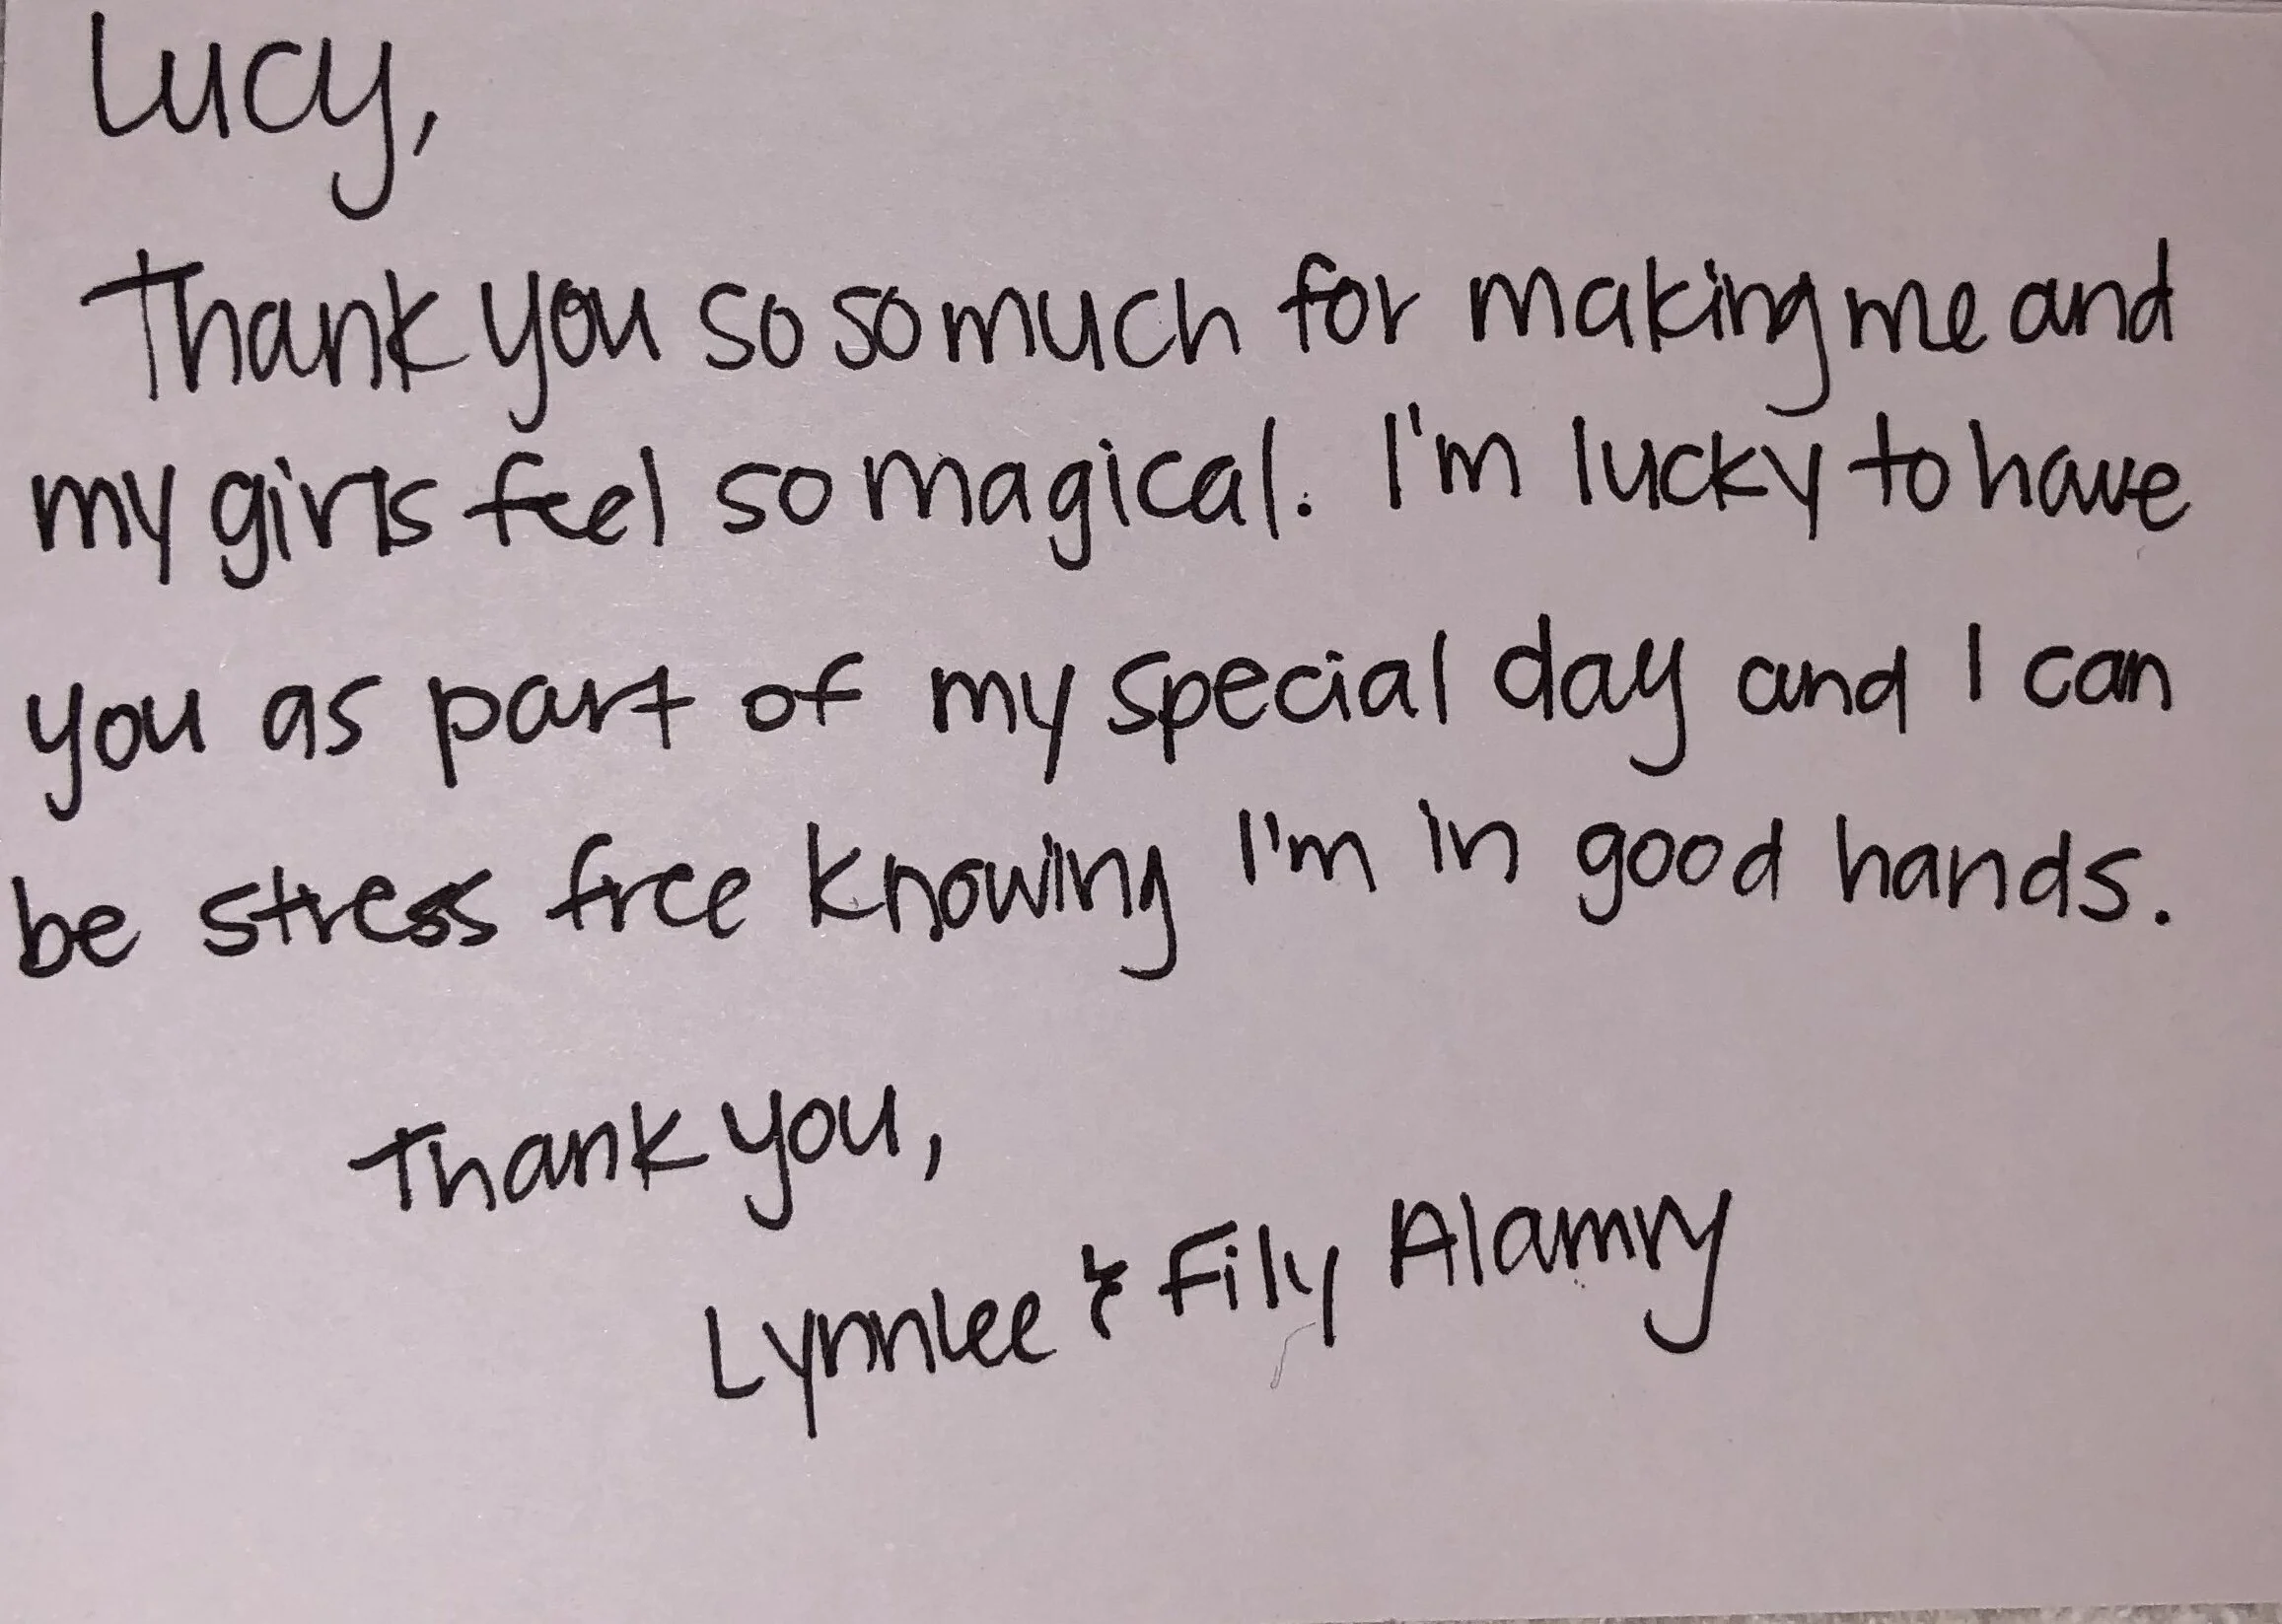 Lucy,
Thank you so so much for making me and
my girls feel so magical. I'm lucky to have
you as part of my special day and I can
be stress free knowing I'm in good hands.
Thank you,
Lynnlee & Fily Alamry